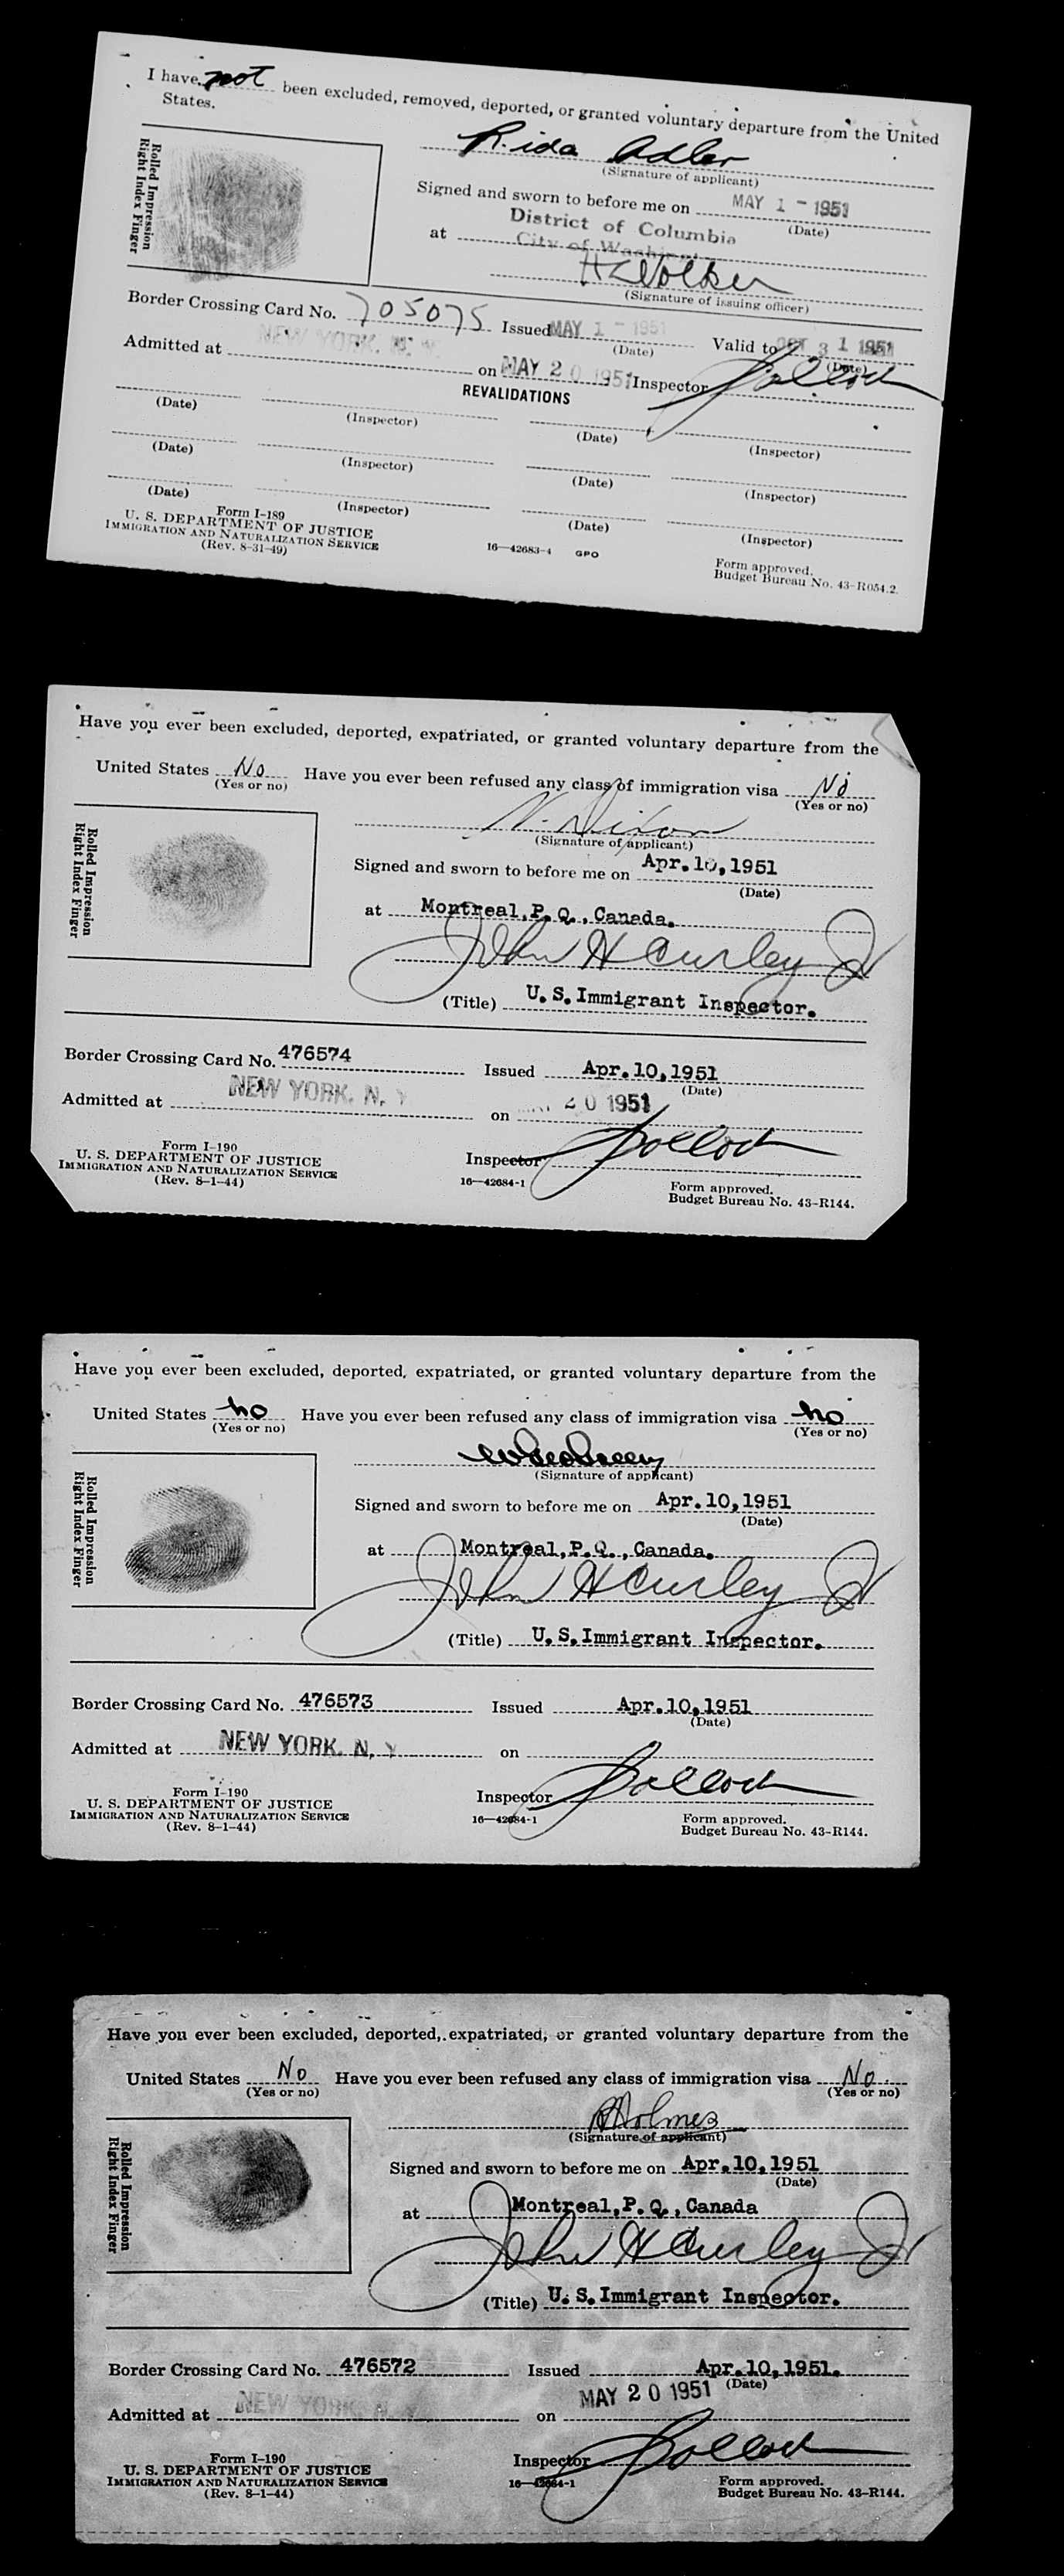 I have not been excluded, removed, deported, or granted voluntary departure from the United
States.
Rolled Impression
Right Index Finger
Rida Adler
(Signature of applicant)
Signed and sworn to before me on MAY 1 - 1951
(Date)
District of Columbia
at City of
(Signature of issuing officer)
Border Crossing Card No. 705075 Issued MAY 1 - 1951 Valid to OCT 3 1 1951
(Date) (Date)
Admitted at NEW YORK, N. Y on MAY 2 0 1951 Inspector
REVALIDATIONS
(Date) (Inspector) (Date) (Inspector)
(Date) (Inspector) (Date) (Inspector)
(Date) (Inspector) (Date) (Inspector)
Form I-189
U. S. DEPARTMENT OF JUSTICE
IMMIGRATION AND NATURALIZATION SERVICE
(Rev. 8-31-49)
16—42683-4 GPO
Form approved.
Budget Bureau No. 43-R054.2.
Have you ever been excluded, deported, expatriated, or granted voluntary departure from the
United States No Have you ever been refused any class of immigration visa No
(Yes or no) (Yes or no)
Rolled Impression
Right Index Finger
N. Dixon
(Signature of applicant)
Signed and sworn to before me on Apr.10,1951
(Date)
at Montreal,P.Q.,Canada.
John H Curley Jr
(Title) U.S.Immigrant Inspector.
Border Crossing Card No. 476574 Issued Apr.10,1951
(Date)
Admitted at NEW YORK, N. Y on 2 0 1951
Inspector
Form I-190
U. S. DEPARTMENT OF JUSTICE
IMMIGRATION AND NATURALIZATION SERVICE
(Rev. 8-1-44)
16—42684-1
Form approved.
Budget Bureau No. 43-R144.
Have you ever been excluded, deported, expatriated, or granted voluntary departure from the
United States no Have you ever been refused any class of immigration visa no
(Yes or no) (Yes or no)
Rolled Impression
Right Index Finger
(Signature of applicant)
Signed and sworn to before me on Apr.10,1951
(Date)
at Montreal,P.Q.,Canada.
John H Curley Jr
(Title) U.S.Immigrant Inspector.
Border Crossing Card No. 476573 Issued Apr.10,1951
(Date)
Admitted at NEW YORK, N. Y on
Inspector
Form I-190
U. S. DEPARTMENT OF JUSTICE
IMMIGRATION AND NATURALIZATION SERVICE
(Rev. 8-1-44)
16—42684-1
Form approved.
Budget Bureau No. 43-R144.
Have you ever been excluded, deported, expatriated, or granted voluntary departure from the
United States No Have you ever been refused any class of immigration visa No.
(Yes or no) (Yes or no)
Rolled Impression
Right Index Finger
Holmes
(Signature of applicant)
Signed and sworn to before me on Apr.10,1951
(Date)
at Montreal,P.Q.,Canada
John H Curley Jr
(Title) U.S.Immigrant Inspector.
Border Crossing Card No. 476572 Issued Apr.10,1951.
(Date)
Admitted at NEW YORK, N. Y. on MAY 2 0 1951
Inspector
Form I-190
U. S. DEPARTMENT OF JUSTICE
IMMIGRATION AND NATURALIZATION SERVICE
(Rev. 8-1-44)
16—42684-1
Form approved.
Budget Bureau No. 43-R144.